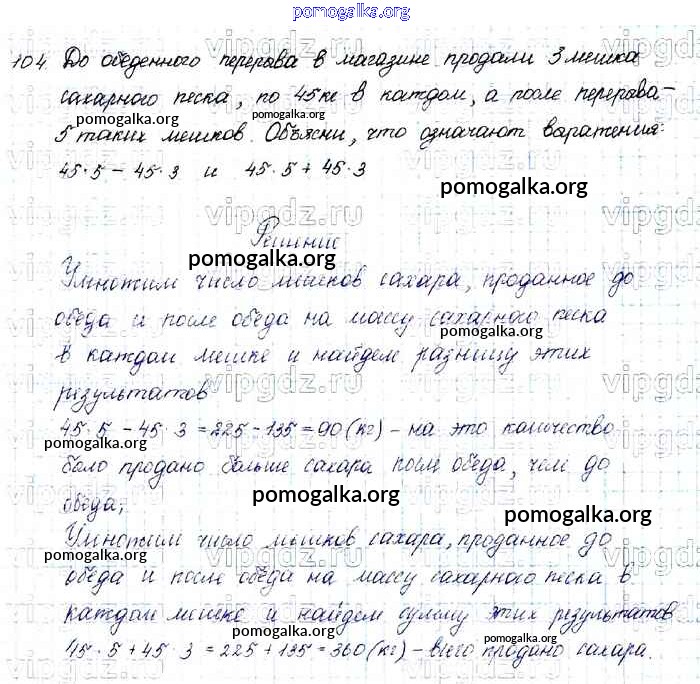 pomogalka.org
104. До обеденного перерыва в магазине продали 3 мешка
сахарного песка, по 45 кг в каждом, а после перерыва -
pomogalka.org pomogalka.org
5 таких мешков. Объясни, что означают выражения:
45·5 - 45·3 и 45·5 + 45·3
pomogalka.org
vipgdz.ru
Решение
pomogalka.org
Умножим число мешков сахара, проданное до
обеда и после обеда на массу сахарного песка
pomogalka.org
в каждом мешке и найдем разницу этих
результатов
pomogalka.org
45·5 - 45·3 = 225 - 135 = 90 (кг) - на это количество
pomogalka.org
было продано больше сахара после обеда, чем до
обеда;
pomogalka.org
pomogalka.org
Умножим число мешков сахара, проданное до
pomogalka.org
обеда и после обеда на массу сахарного песка в
каждом мешке и найдем сумму этих результатов
pomogalka.org pomogalka.org
45·5 + 45·3 = 225 + 135 = 360 (кг) - всего продано сахара.
pomogalka.org